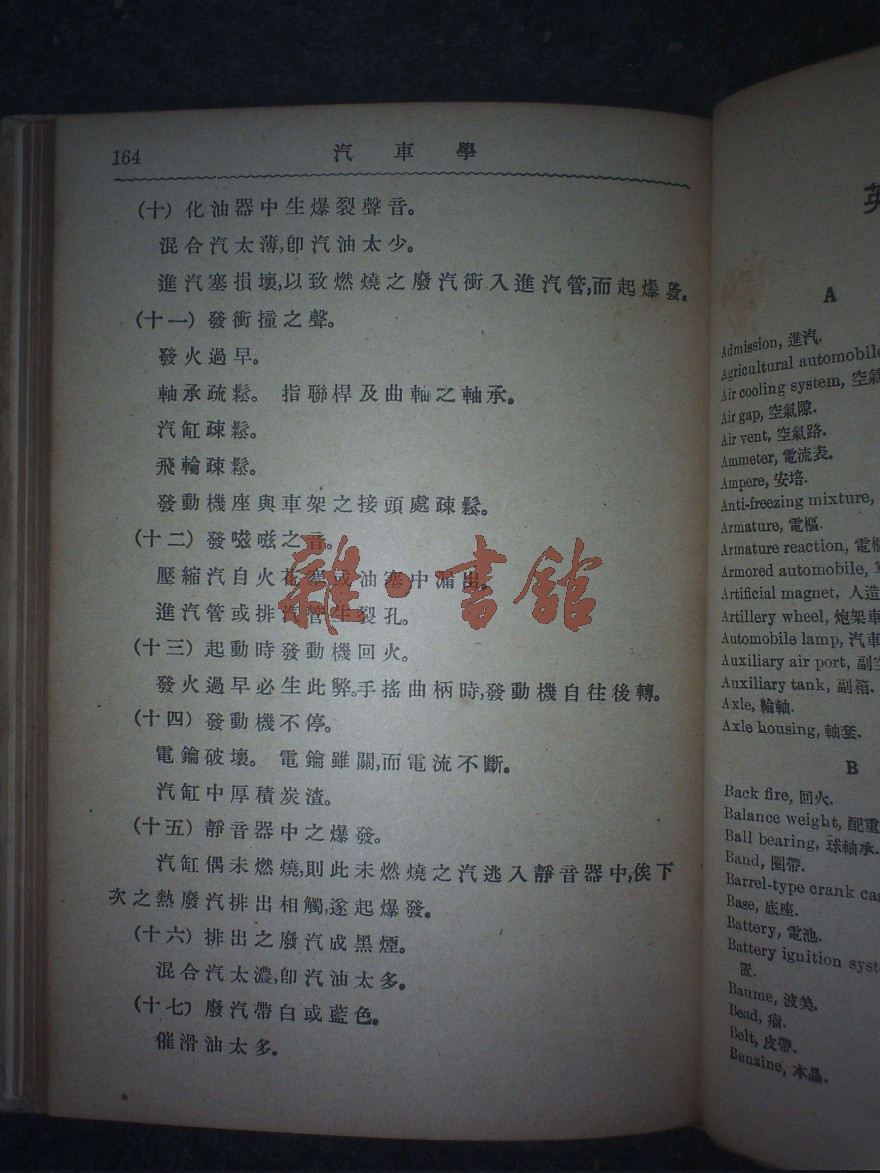 164 汽車學
(十) 化油器中生爆裂聲音。
混合汽太薄,卽汽油太少。
進汽塞損壞,以致燃燒之廢汽衝入進汽管,而起爆發。
(十一) 發衝撞之聲。
發火過早。
軸承疏鬆。 指聯桿及曲軸之軸承。
汽缸疎鬆。
飛輪疎鬆。
發動機座與車架之接頭處疎鬆。
(十二) 發嗞嗞之音。
壓縮汽自火花塞或油塞中漏出。
進汽管或排汽管生裂孔。
雜·書館
(十三) 起動時發動機回火。
發火過早必生此弊。手搖曲柄時,發動機自往後轉。
(十四) 發動機不停。
電鑰破壞。 電鑰雖關,而電流不斷。
汽缸中厚積炭渣。
(十五) 靜音器中之爆發。
汽缸偶未燃燒,則此未燃燒之汽逃入靜音器中,俟下
次之熱廢汽排出相觸,遂起爆發。
(十六) 排出之廢汽成黑煙。
混合汽太濃,卽汽油太多。
(十七) 廢汽帶白或藍色。
催滑油太多。
英
A
Admission, 進汽.
Agricultural automobile
Air cooling system, 空氣
Air gap, 空氣隙.
Air vent, 空氣路.
Ammeter, 電流表.
Ampere, 安培.
Anti-freezing mixture,
Armature, 電樞.
Armature reaction, 電樞
Armored automobile,
Artificial magnet, 人造
Artillery wheel, 炮架車
Automobile lamp, 汽車
Auxiliary air port, 副空
Auxiliary tank, 副箱.
Axle, 輪軸.
Axle housing, 軸套.
B
Back fire, 回火.
Balance weight, 配重
Ball bearing, 球軸承.
Band, 圈帶.
Barrel-type crank cas
Base, 底座.
Battery, 電池.
Battery ignition syst
置.
Baume, 波美.
Bead, 瘤.
Belt, 皮帶.
Benzine, 本晶.